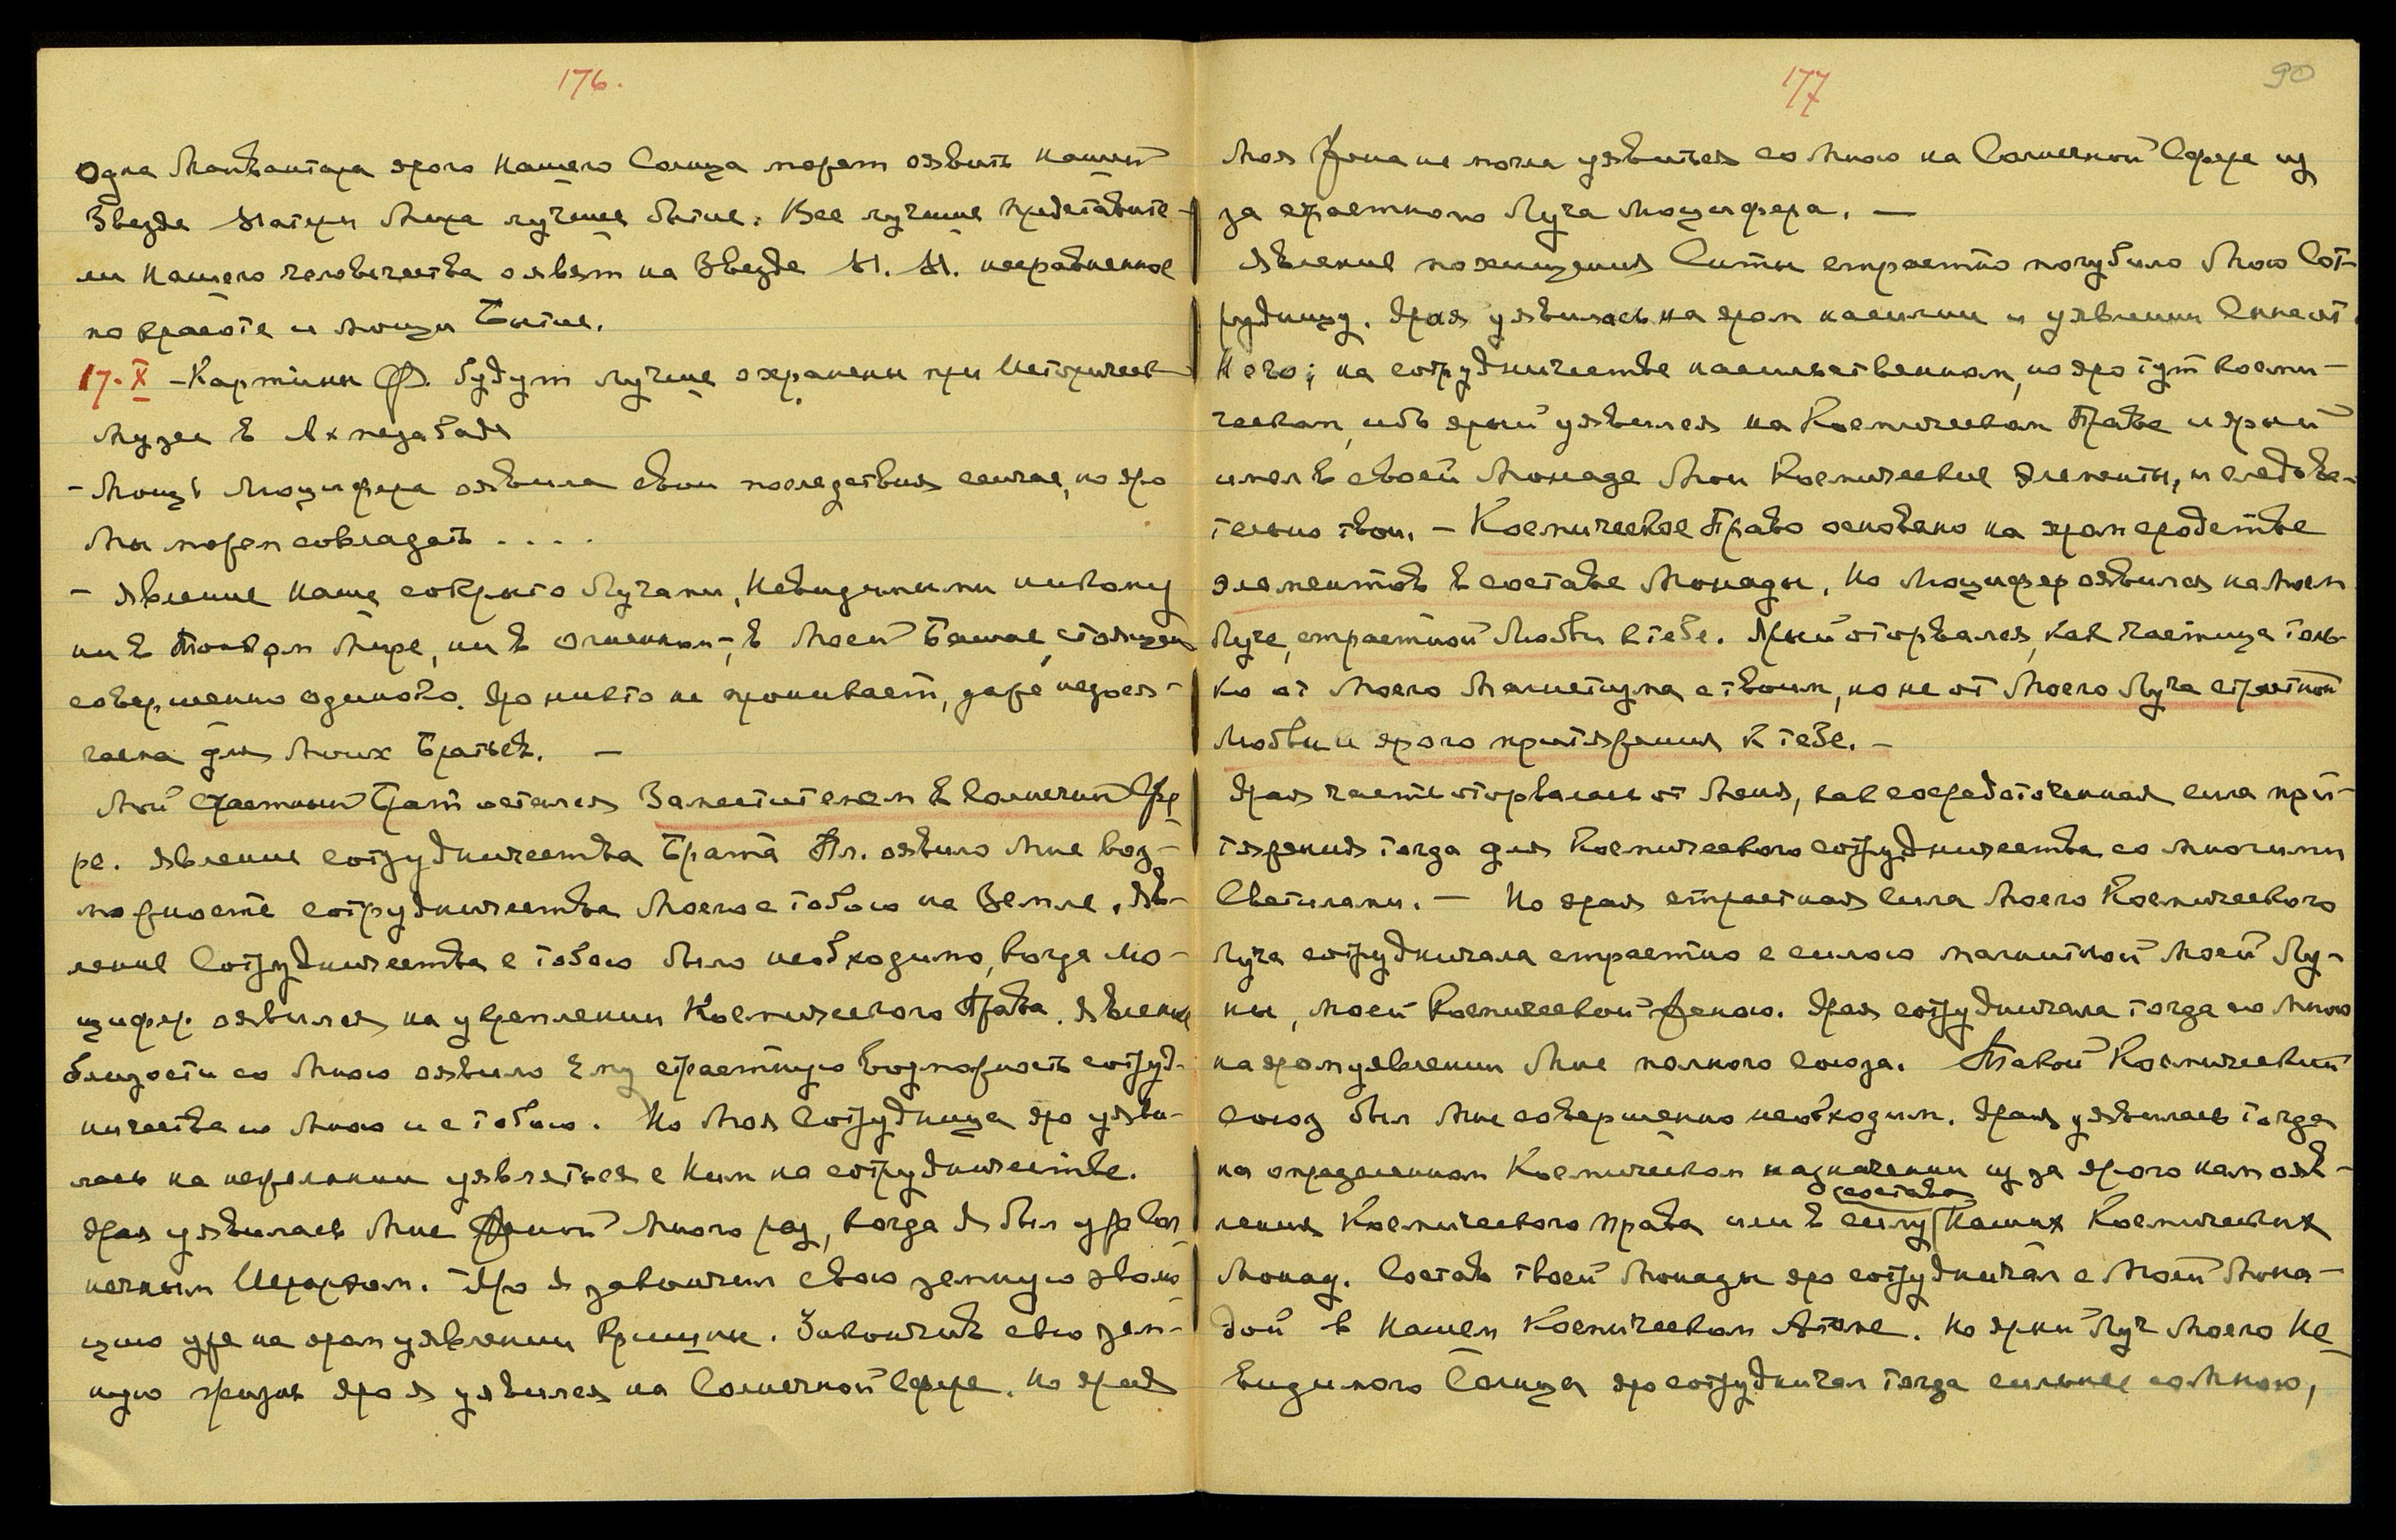 176.
Одна Манвантара ярого Нашего Солнца может оявить нашей
Звезде Матери Мира лучшее бытие. Все лучшие представите-
ли Нашего человечества оявят на Звезде М. М. несравненное
по красоте и мощи Бытие.
17.X - Картины Ф. будут лучше охранены при Историческ
Музее в Ахмедабаде
- Мощь Люцифера оявила свои последствия сейчас, но яро
Мы можем совладать . . . .
- Явление Наше сокрыто Лучами, Невидимыми никому
ни в Тонком Мире, ни в огненном -, в Моей Башне, стоящей
совершенно одиноко. Яро никто не проникает, даже недося-
гаема для Моих Братьев. -
Мой Страстный Брат остался Заместителем в Солнечной Сфе
ре. Явление сотрудничества Брата Пл. оявило Мне воз-
можность сотрудничества Моего с тобою на Земле. Яв-
ление Сотрудничества с тобою было необходимо, когда Лю-
цифер оявился на укреплении Космического Права. Явление
близости со Мною оявило Ему страстную возможность сотруд-
ничества со Мною и с тобою. Но Моя Сотрудница яро уяви-
лась на нежелании уявляться с Ним на сотрудничестве.
Ярая уявилась Мне Женой много раз, когда Я был уже Сол
нечным Иерархом. Яро Я закончил свою земную эволю
цию уже на яром уявлении Кришны. Закончив свою зем-
ную жизнь яро Я уявился на Солнечной Сфере. Но ярая
177
90
Моя Жена не могла уявиться со Мною на Солнечной Сфере из
за страстного Луча Люцифера. -
Явление похищения Ситы страстно погубило Мою Сот-
рудницу. Ярая уявилась на яром насилии и уявлении Ненавист
Него; на сотрудничестве насильственном, но яро тут косми-
ческом, ибо ярый уявился на Космическом Праве и ярый
имел в своей Монаде Мои Космические элементы, и следова-
тельно твои. - Космическое Право основано на яром сродстве
элементов в составе Монады. Но Люцифер оявился на Моем
Луче, страстной Любви к тебе. Ярый оторвался, как частица толь-
ко от Моего Магнетизма с твоим, но не от Моего Луча страстной
Любви и ярого притяжения к тебе. -
Ярая часть оторвалась от Меня, как сосредоточенная сила при-
тяжения тогда для Космического сотрудничества со многими
Светилами. - Но ярая страстная сила Моего Космического
Луча сотрудничала страстно с силою магнитной Моей Лу-
ны, Моей Космической Женою. Ярая сотрудничала тогда со Мною
на яром уявлении Мне полного союза. Такой Космический
союз был Мне совершенно необходим. Ярая уявилась тогда
на определенном Космическом назначении из за ярого нам ояв-
ления Космического Права или в силу состава Наших Космических
Монад. Состав твоей Монады яро сотрудничал с Моей Мона-
дой в Нашем Космическом Атоме. Но ярый Луч Моего Не
видимого Солнца яро сотрудничал тогда сильнее со Мною,